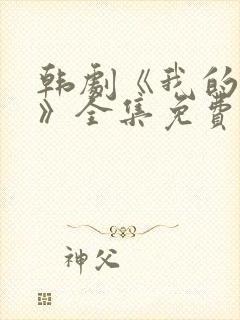 韩剧《我的
》全集免费
神父